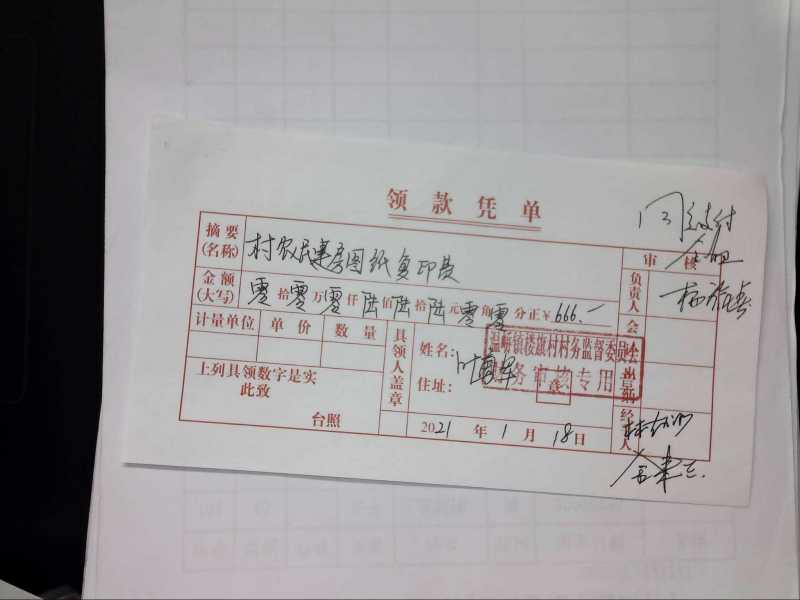 领款凭单
摘要(名称) 村农民建房图纸复印费
审核
金额(大写) 零拾零万零仟陆佰陆拾陆元零角零分正¥666.—
负责人
计量单位 单价 数量
具领人盖章
姓名:
住址:
会
出纳
经人
上列具领数字是实
此致
台照
2021年1月18日
镇楼旗村村务监督委员会
务审核专用章